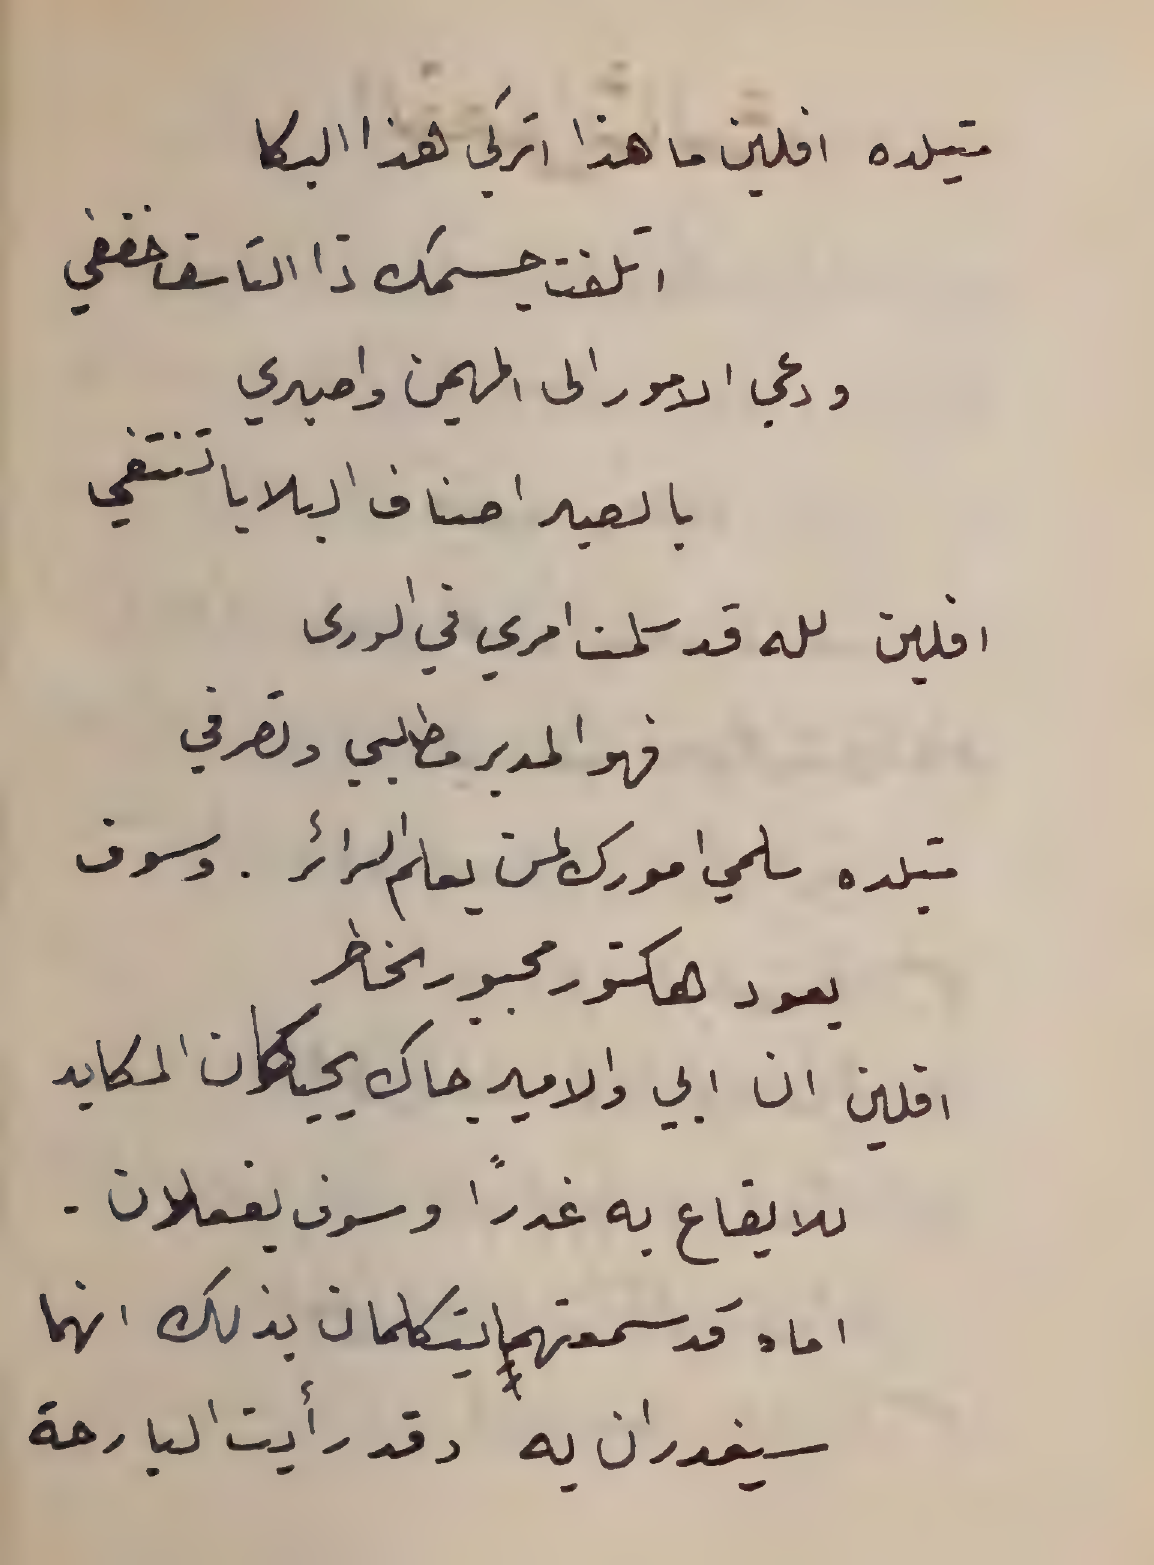 متيلده افلين ما هذا اتركي هذا البكا
اتلفت جسمك ذا التاسف خففي
ودعي الامور الى المهيمن واصبري
بالصبر اصناف البلايا تنتفي
افلين لله قد سلمت امري في الورى
فهو المدبر مطلبي وتصرفي
متيلده سلمي امورك لمن يعلم السرائر . وسوف
يعود هكتور مجبور الخاطر
افلين ان ابي والامير جاك يحيكان المكايد
للايقاع به غدرًا وسوف يفعلان .
اماه قد سمعتهما يتكلمان بذلك انهما
سيغدران به وقد رأيت البارحة